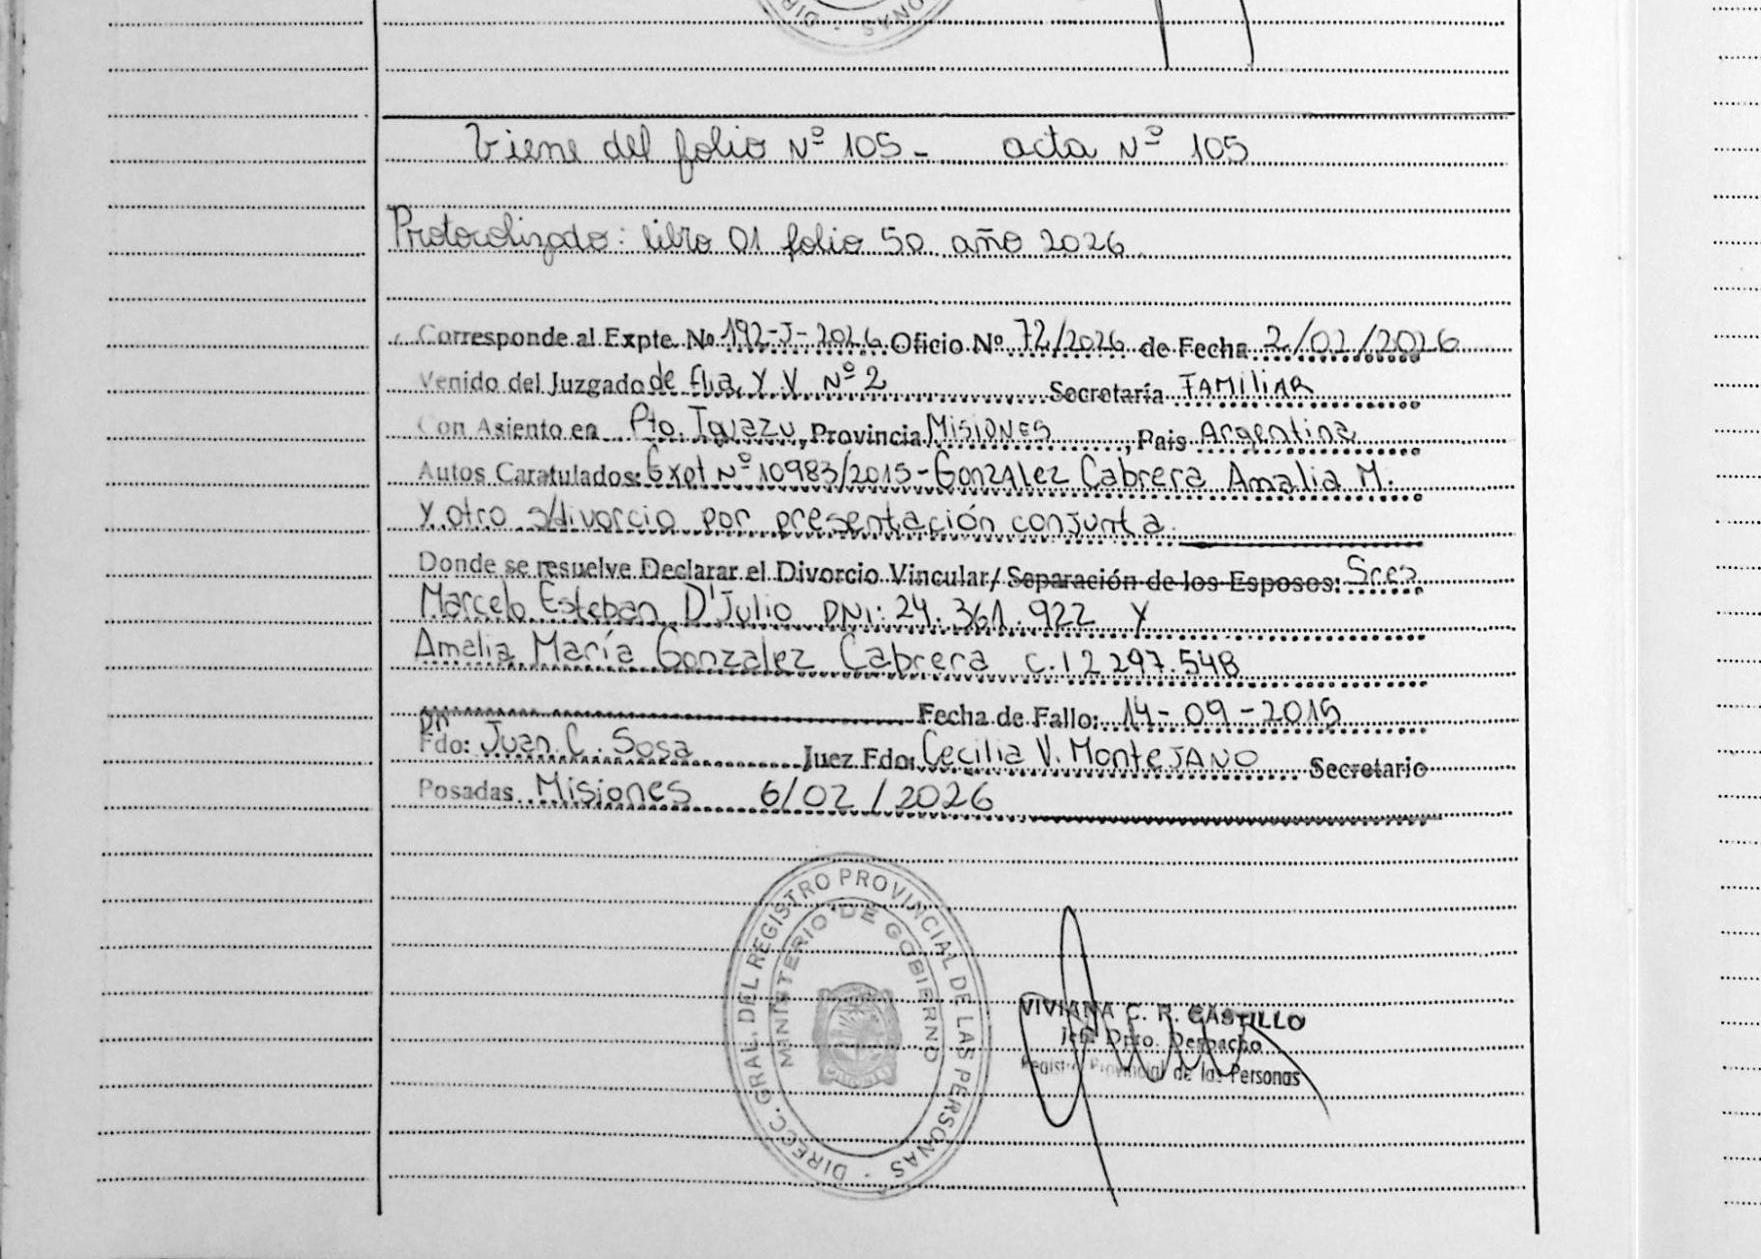 DIR NAS -
Viene del folio Nº 105 - acta Nº 105
Protocolizado: libro 01 folio 50 año 2026
Corresponde al Expte. Nº 192-J-2026 Oficio Nº 72/2026 de Fecha 2/02/2026
Venido del Juzgado de flia, Y V Nº 2 Secretaría FAMILIAR
Con Asiento en Pto. Iguazu, Provincia MISIONES, Pais Argentina
Autos Caratulados: Expt Nº 10983/2015 - Gonzalez Cabrera Amalia M.
Y otro s/divorcio por presentación conjunta
Donde se resuelve Declarar el Divorcio Vincular/ Separación de los Esposos: Sres
Marcelo Esteban D'Julio DNI: 24.361.922 Y
Amalia María Gonzalez Cabrera C.I 2 297.548
Fecha de Fallo: 14-09-2015
Fdo: Juan C. Sosa Juez Fdo: Cecilia V. MonteJANO Secretario
Posadas Misiones 6/02/2026
DIRECC. GRAL. DEL REGISTRO PROVINCIAL DE LAS PERSONAS -
MINISTERIO DE GOBIERNO
VIVIANA C. R. CASTILLO
Jefa Dpto. Despacho
Registro Provincial de las Personas